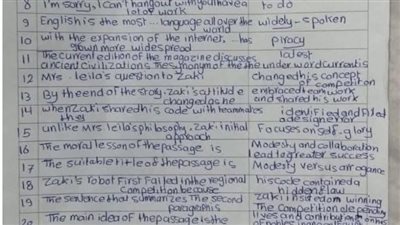 8 I'm sorry, I can't hang out with you I have a lot of work to do
9 English is the most ... language all over the world widely-spoken
10 with the expansion of the internet, ... has grown more widespread piracy
11 The current edition of the magazine discusses ancient civilizations. The synonym of the the under word current is latest
12 Mrs. Leila's question to Zaki changed his concept of competition
13 By the end of the story, Zaki's attitude changed as he embraced teamwork and shared his work
14 when Zaki shared his code with teammates they identified and fixed a design error
15 unlike Mrs. leila's philosophy, Zaki's initial approach Focuses on self-glory
16 The moral lesson of the passage is Modesty and collaboration lead to greater success
17 The suitable title of the passage is Modesty versus arrogance
18 Zaki's robot First Failed in the regional Competition because his Code contained a
19 The sentence that summarizes The second paragraph is Zaki insisted on winning The Competition alone
20 The main idea of the passage is the lives and contributions